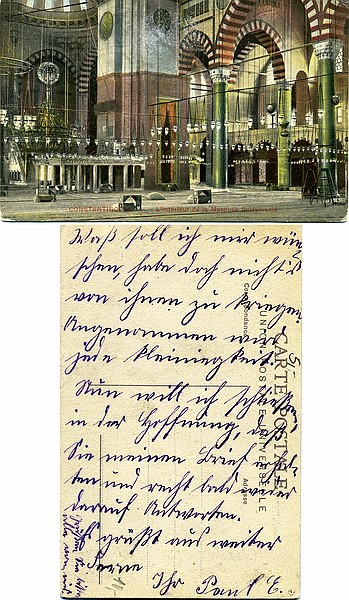 CONSTANTINOPLE L'Intérieur de la Mosquée Suleymanié
Waß soll ich mir wün
schen, habe doch nicht's
von ihnen zu kriegen.
Angenommen wird
jede kleinigkeit.
Nun will ich schließen
in der Hoffnung, daß
Sie meinen Brief erhal-
ten und recht bald wieder
darauf Antworten.
Es grüßt aus weiter
Ferne
Ihr Paul E.
CARTE POSTALE
UNION POSTALE UNIVERSELLE
Correspondance
Adresse
5-